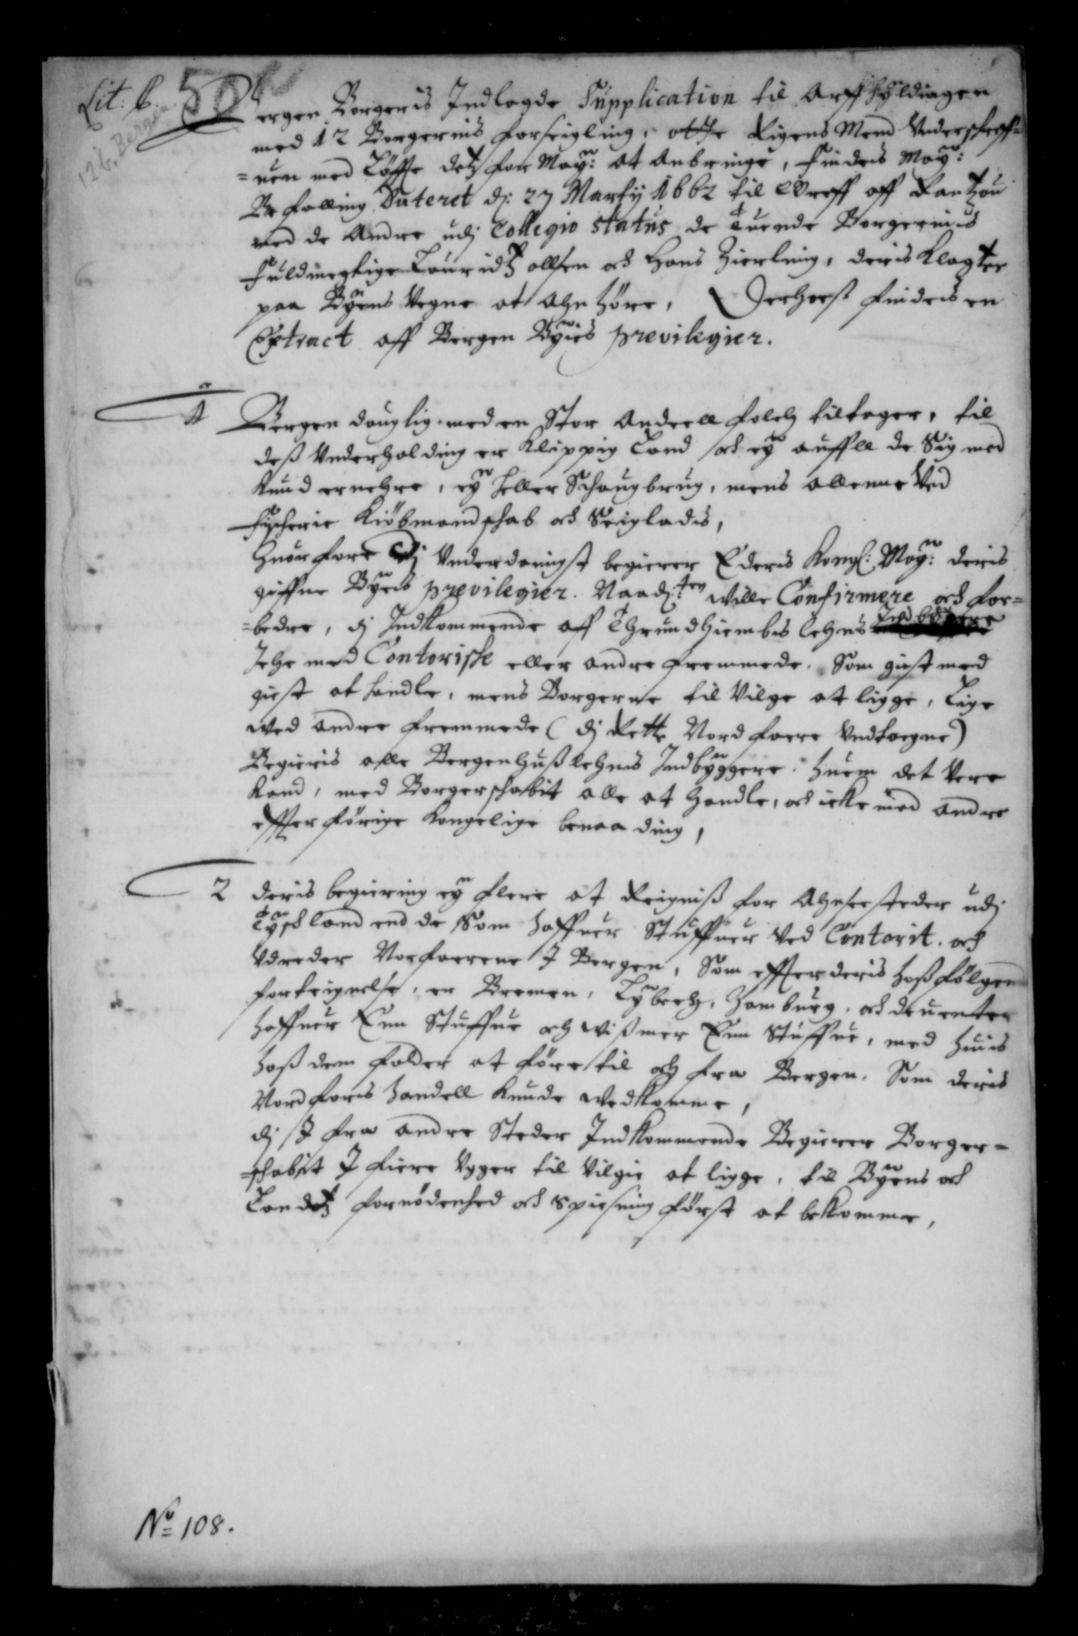 Lit: B. 50
126. Bergen
Bergen Borgeris Indlagde Supplication til Arffhyldingen
med 12 Borgernis forseigling, otte Rigens Mend Underschreff=
=uen med Løffte dett for Mayᵗ: at Anbringe, findis Mayᵗ:
Befalling Dateret dj: 27 Martij 1662 til Greff aff Rantzou
med de Andre udj Collegio status de tuende Borgernis
fuldmegtige Lauridtz ollsen och Hans Zierling, deris Klagter
paa Byens Vegne at Ahnhøre, Derhoest findis en
Extract aff Bergen Byies previlegier.
1 Bergen dauglig med en stor Andeell folch tiltager, til
dess Underholding er Klippig Land och ey auffll de Sig med
Kund ernehre, ey heller Schougbrug, mens allenne Ved
fischerie Kiøbmandschab och Seigladtz,
Huorfore dj Underdanigst begierer Ederis Kongl: Mayᵗ: deris
giffne Byens previlegier. Naad:ten wille Confirmere och for=
=bedre, dj Indkommende aff Thrundhiembs lehns Indbyggere
Icke med Contorische eller andre fremmede. Som giest med
giest at handle, mens Borgerne til Vilge at ligge, Lige
wed andre fremmede (dj Rette Nordfarre Undtagne)
Begieris alle Bergenhuss lehns Indbyggere. huem det Vere
kand, med Borgerschabit alle at handle, och icke med andre
effter førige Kongelige benaading,
2 deris begiering ey flere at Reigniss for Ahnseesteder udj
Tyschland end de Som haffuer Stuffuer Ved Contorit. och
Udreder Norfarerne I Bergen, Som effter deris hossfølgende
forteignelse, er Bremen, Lybech, Hamburg, och deuenter
haffuer Een Stuffue och Wissmer Een Stuffue, med huis
hoss dem falder at føre til och fra Bergen. Som deris
Nordfars handell Kunde Wedkomme,
dj I fra andre Steder Indkommende Begierer Borger=
=schabit I fiere Uger til Vilgie at ligge, til Byens och
Landtz fornødenhed och Spiesning først at bekomme,
No 108.